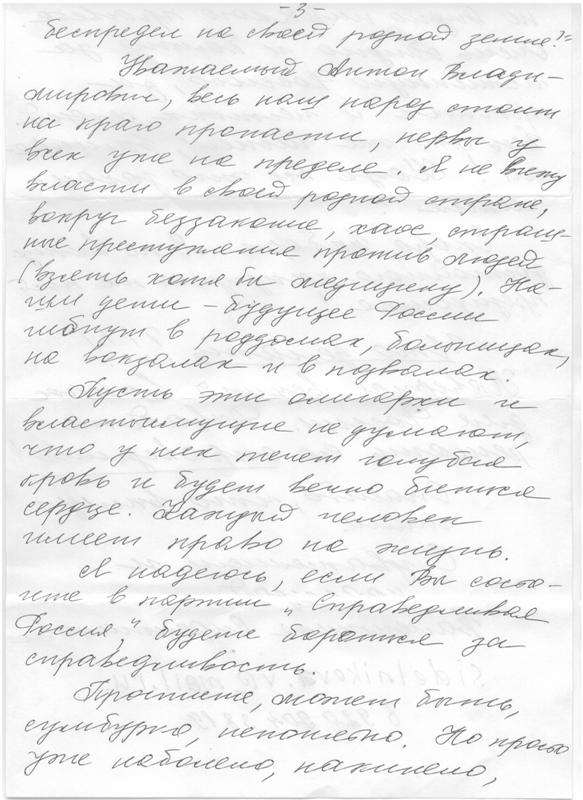 -3-
беспредел на своей родной земле?"
Уважаемый Антон Влади-
мирович, весь наш народ стоит
на краю пропасти, нервы у
всех уже на пределе. Я не вижу
власти в своей родной стране,
вокруг беззаконие, хаос, страш-
ные преступления против людей
(взять хотя бы медицину). На-
ши дети - будущее России
гибнут в роддомах, больницах,
на вокзалах и в подвалах.
Пусть эти олигархи и
властьимущие не думают,
что у них течет голубая
кровь и будет вечно биться
сердце. Каждый человек
имеет право на жизнь.
Я надеюсь, если Вы состо-
ите в партии „Справедливая
Россия", будете бороться за
справедливость.
Простите, может быть,
сумбурно, непонятно. Но просто
уже наболело, накипело,